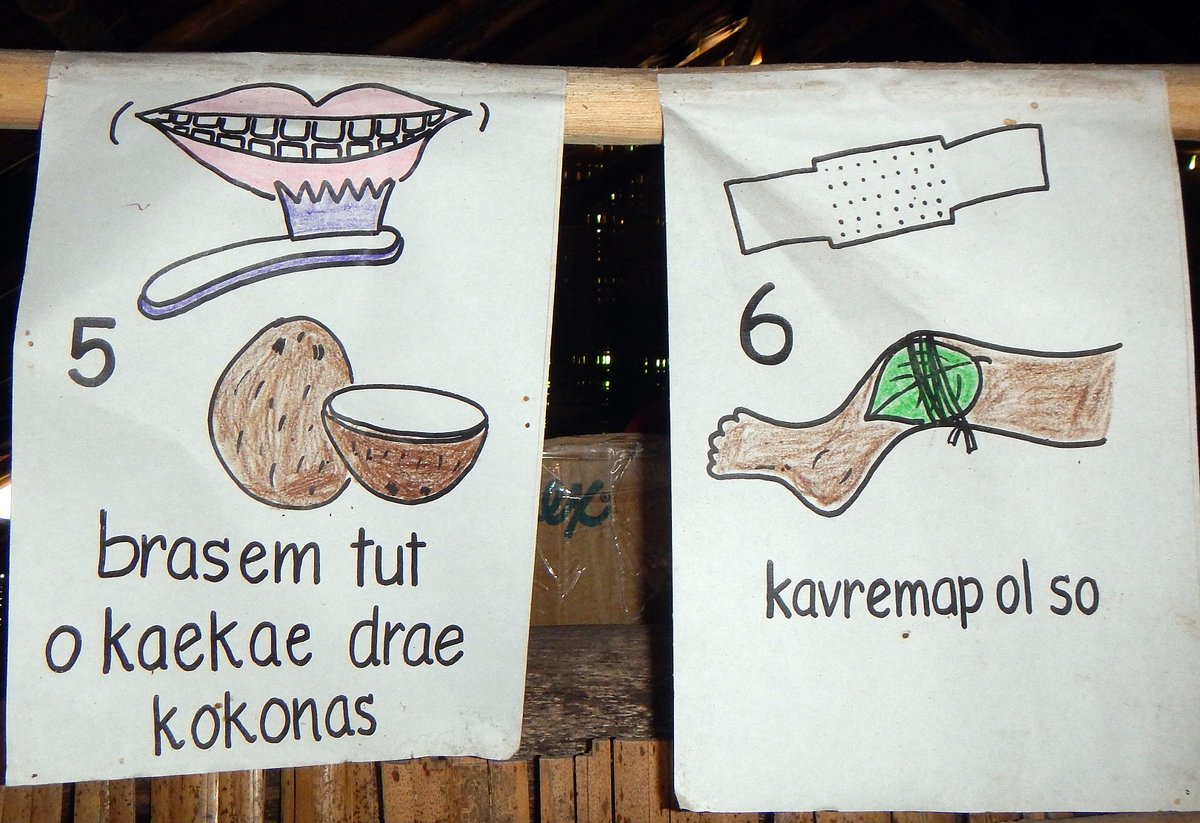 5
brasem tut
o kaekae drae
kokonas
6
kavremap ol so